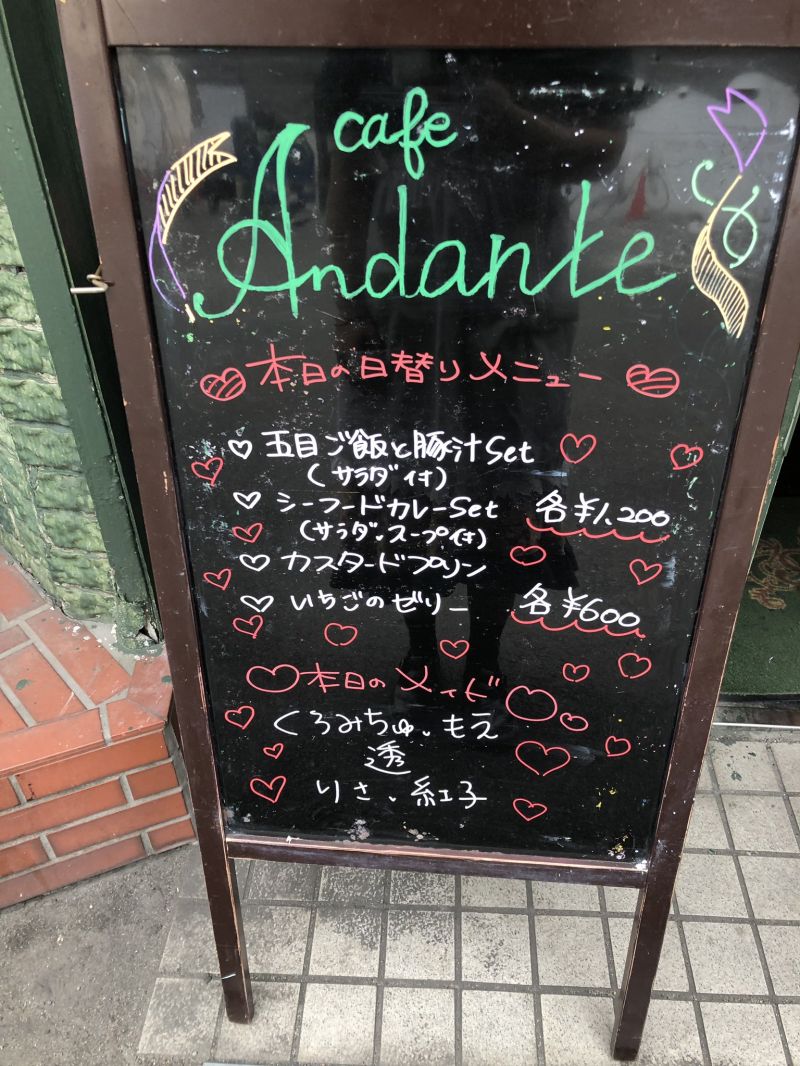 cafe
Andante
本日の日替りメニュー
五目ご飯と豚汁Set
(サラダ付)
シーフードカレーSet 各¥1,200
(サラダ、スープ付)
カスタードプリン
いちごのゼリー 各¥600
本日のメイド
くるみちゅ、もえ
透
りさ、紅子